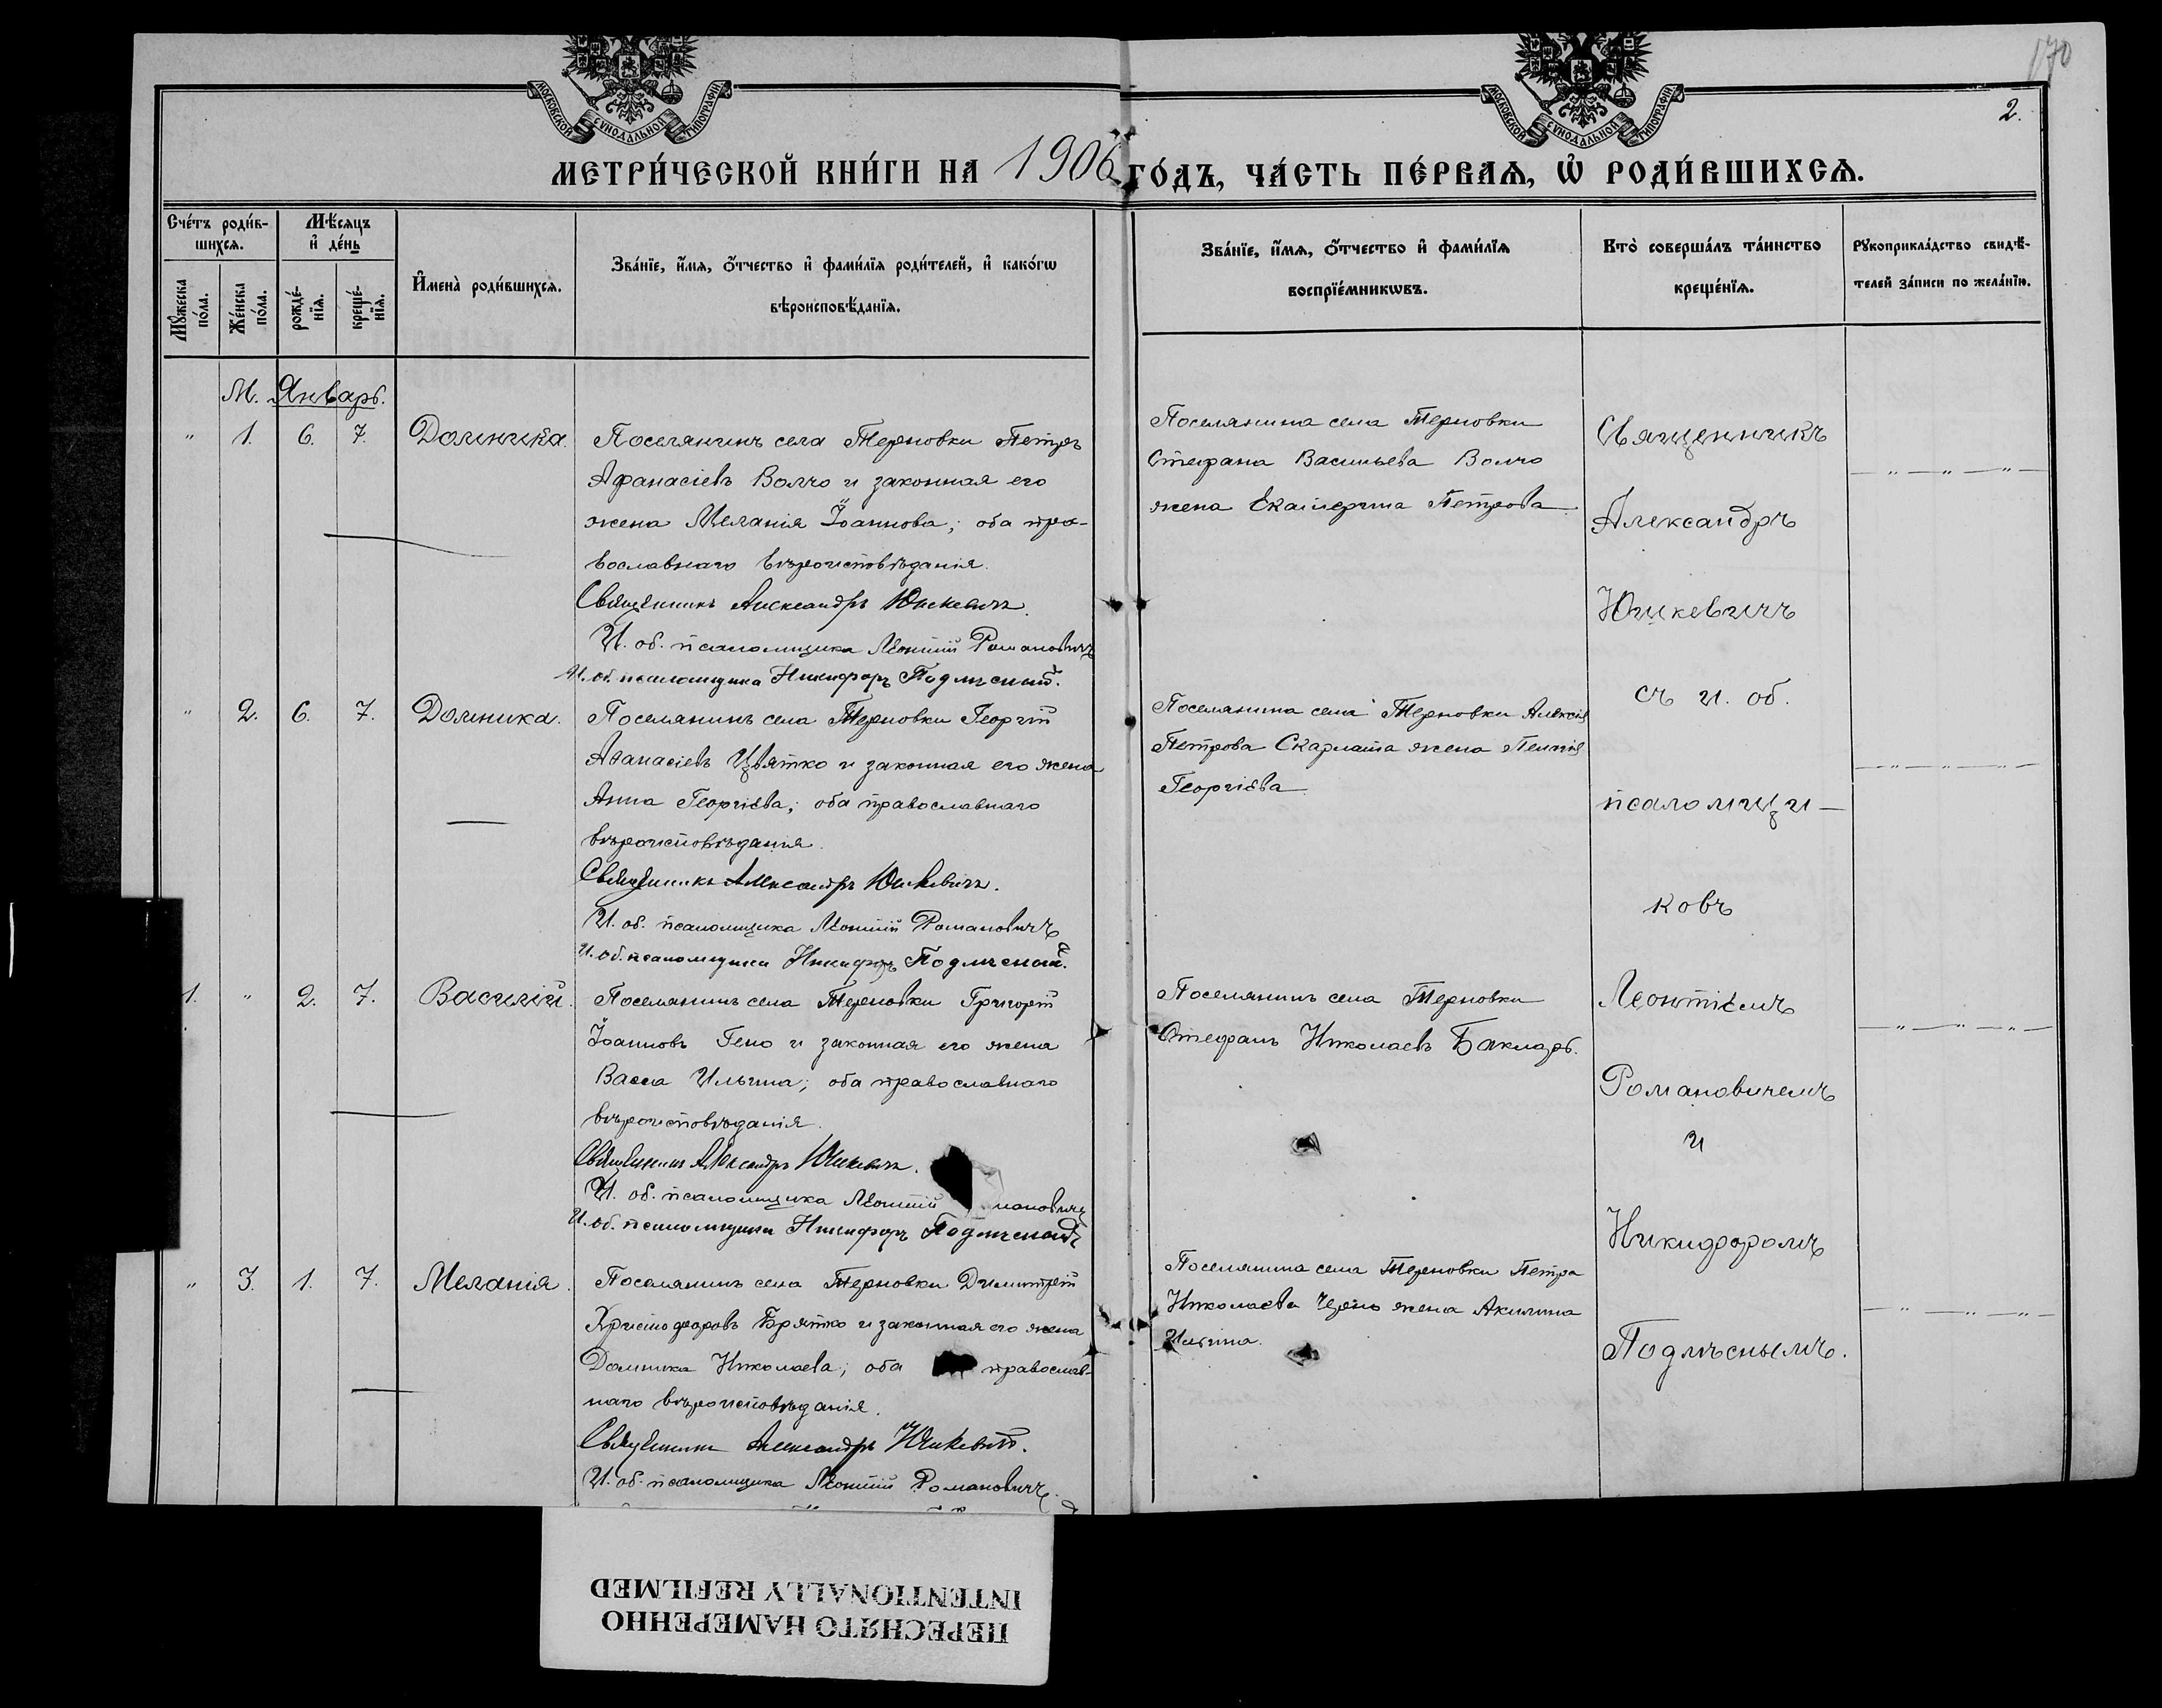 170
2.
МОСКОВСКОЙ СѴНОДАЛЬНОЙ ТИПОГРАФІИ
МОСКОВСКОЙ СѴНОДАЛЬНОЙ ТИПОГРАФІИ
МЕТРИ́ЧЕСКОЙ КНИ́ГИ НА 1906 ГО́ДЪ, ЧА́СТЬ ПЕ́РВАѦ, Ѡ҆ РОДИ́ВШИХСѦ.
Сче́тъ роди́в-
шихсѧ.
Мѣ́сяцъ
и҆ де́нь
Мꙋ́жеска по́ла.
Же́нска по́ла.
рожде́-нїѧ.
креще́-нїѧ.
И҆мена̀ роди́вшихсѧ.
Зва́нїе, и҆́мѧ, ѻ҆́тчество и҆ фами́лїѧ роди́телей, и҆ како́гѡ
вѣроисповѣ́данїѧ.
Зва́нїе, и҆́мѧ, ѻ҆́тчество и҆ фами́лїѧ
воспрїе́мникѡвъ.
Кто̀ соверша́лъ та́инство
креще́нїѧ.
Рꙋкоприкла́дство свидѣ́-
телей за́писи по жела́нїю.
М. Январь.
" 1. 6. 7. Домника.
Поселянинъ села Терновки Петръ
Афанасіевъ Волчо и законная его
жена Меланія Іоаннова; оба пра-
вославнаго вѣроисповѣданія.
Священникъ Александръ Юшкевичъ.
И. об. псаломщика Леонтій Романовичъ
И. об. псаломщика Никифоръ Подлѣсный.
Поселянина села Терновки
Стефана Васильева Волчо
жена Екатерина Петрова
" 2. 6. 7. Домника.
Поселянинъ села Терновки Георгій
Аѳанасіевъ Цвятко и законная его жена
Анна Георгіева; оба православнаго
вѣроисповѣданія.
Священникъ Александръ Юшкевичъ.
И. об. псаломщика Леонтій Романовичъ
И. об. псаломщика Никифоръ Подлѣсный.
Поселянина села Терновки Алексія
Петрова Скарлата жена Пелагія
Георгіева
1. " 2. 7. Василій.
Поселянинъ села Терновки Григорій
Іоанновъ Гено и законная его жена
Васса Ильина; оба православнаго
вѣроисповѣданія.
Священникъ Александръ Юшкевичъ.
И. об. псаломщика Леонтій мановичъ
И. об. псаломщика Никифоръ Подлѣсный
Поселянинъ села Терновки
Стефанъ Николаевъ Бакларъ.
" 3. 1. 7. Меланія.
Поселянинъ села Терновки Димитрій
Христофоровъ Брятко и законная его жена
Домника Николаева; оба православ-
наго вѣроисповѣданія.
Священникъ Александръ Юшкевичъ.
И. об. псаломщика Леонтій Романовичъ.
Поселянина села Терновки Петра
Николаева жена Акилина
Ильина.
Священникъ
Александръ
Юшкевичъ
съ и. об.
псаломщи-
ковъ
Леонтіемъ
Романовичемъ
и
Никифоромъ
Подлѣснымъ.
ПЕРЕСНЯТО НАМЕРЕННО
INTENTIONALLY REFILMED